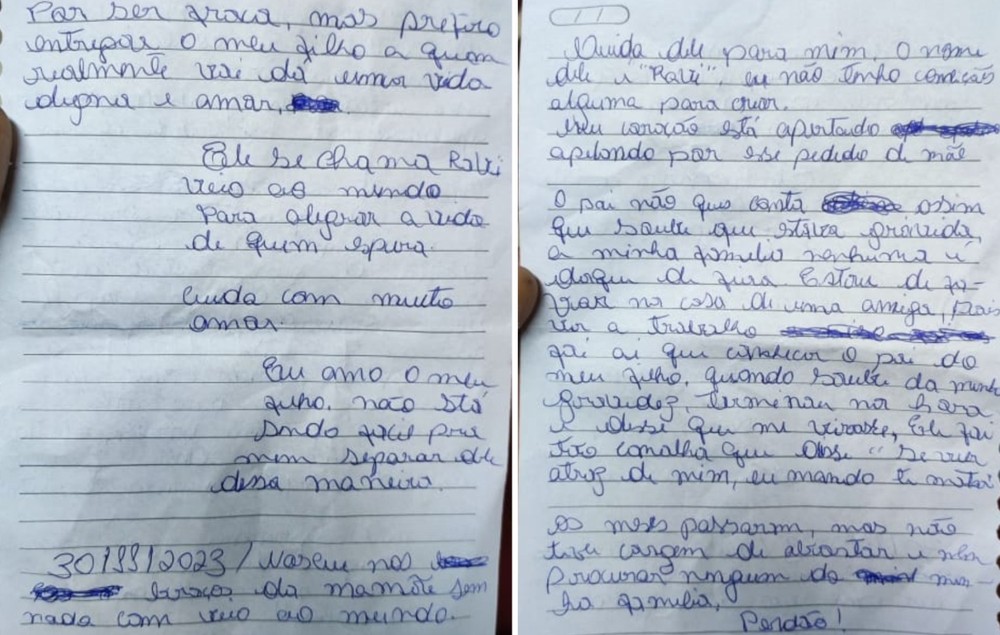 Por ser fraca, mas prefiro
entregar o meu filho a quem
realmente vai dá uma vida
digna e amor,
Ele se chama Ravi
veio ao mundo
Para alegrar a vida
de quem espera.
Cuida com muito
amor.
Eu amo o meu
filho, não stá
sndo facil pra
mim separar dele
dessa maneira.
30/11/2023 / Nasceu nos
braços da mamãe sem
nada com veio ao mundo.
Cuida dele para mim, O nome
dele é "Ravi", eu não tenho condição
alguma para criar.
Meu coração está apertado
apelando por esse pedido de mãe
O pai não quis conta assim
que soube que estava gravida,
a minha familia nenhuma é
daqui de fora. Estou de fa-
vor na casa de uma amiga, pois
vir a trabalho
foi ai que conheci o pai do
meu filho, quando soube da minha
gravidez, terminou na hora
e disse que me virasse, Ele foi
tão canalha que disse "Se vier
atrz de mim, eu mando ti matar
os meses passarm, mas não
tive corgem de abortar e nem
procurar ninguem da min-
ha familia,
Perdão!